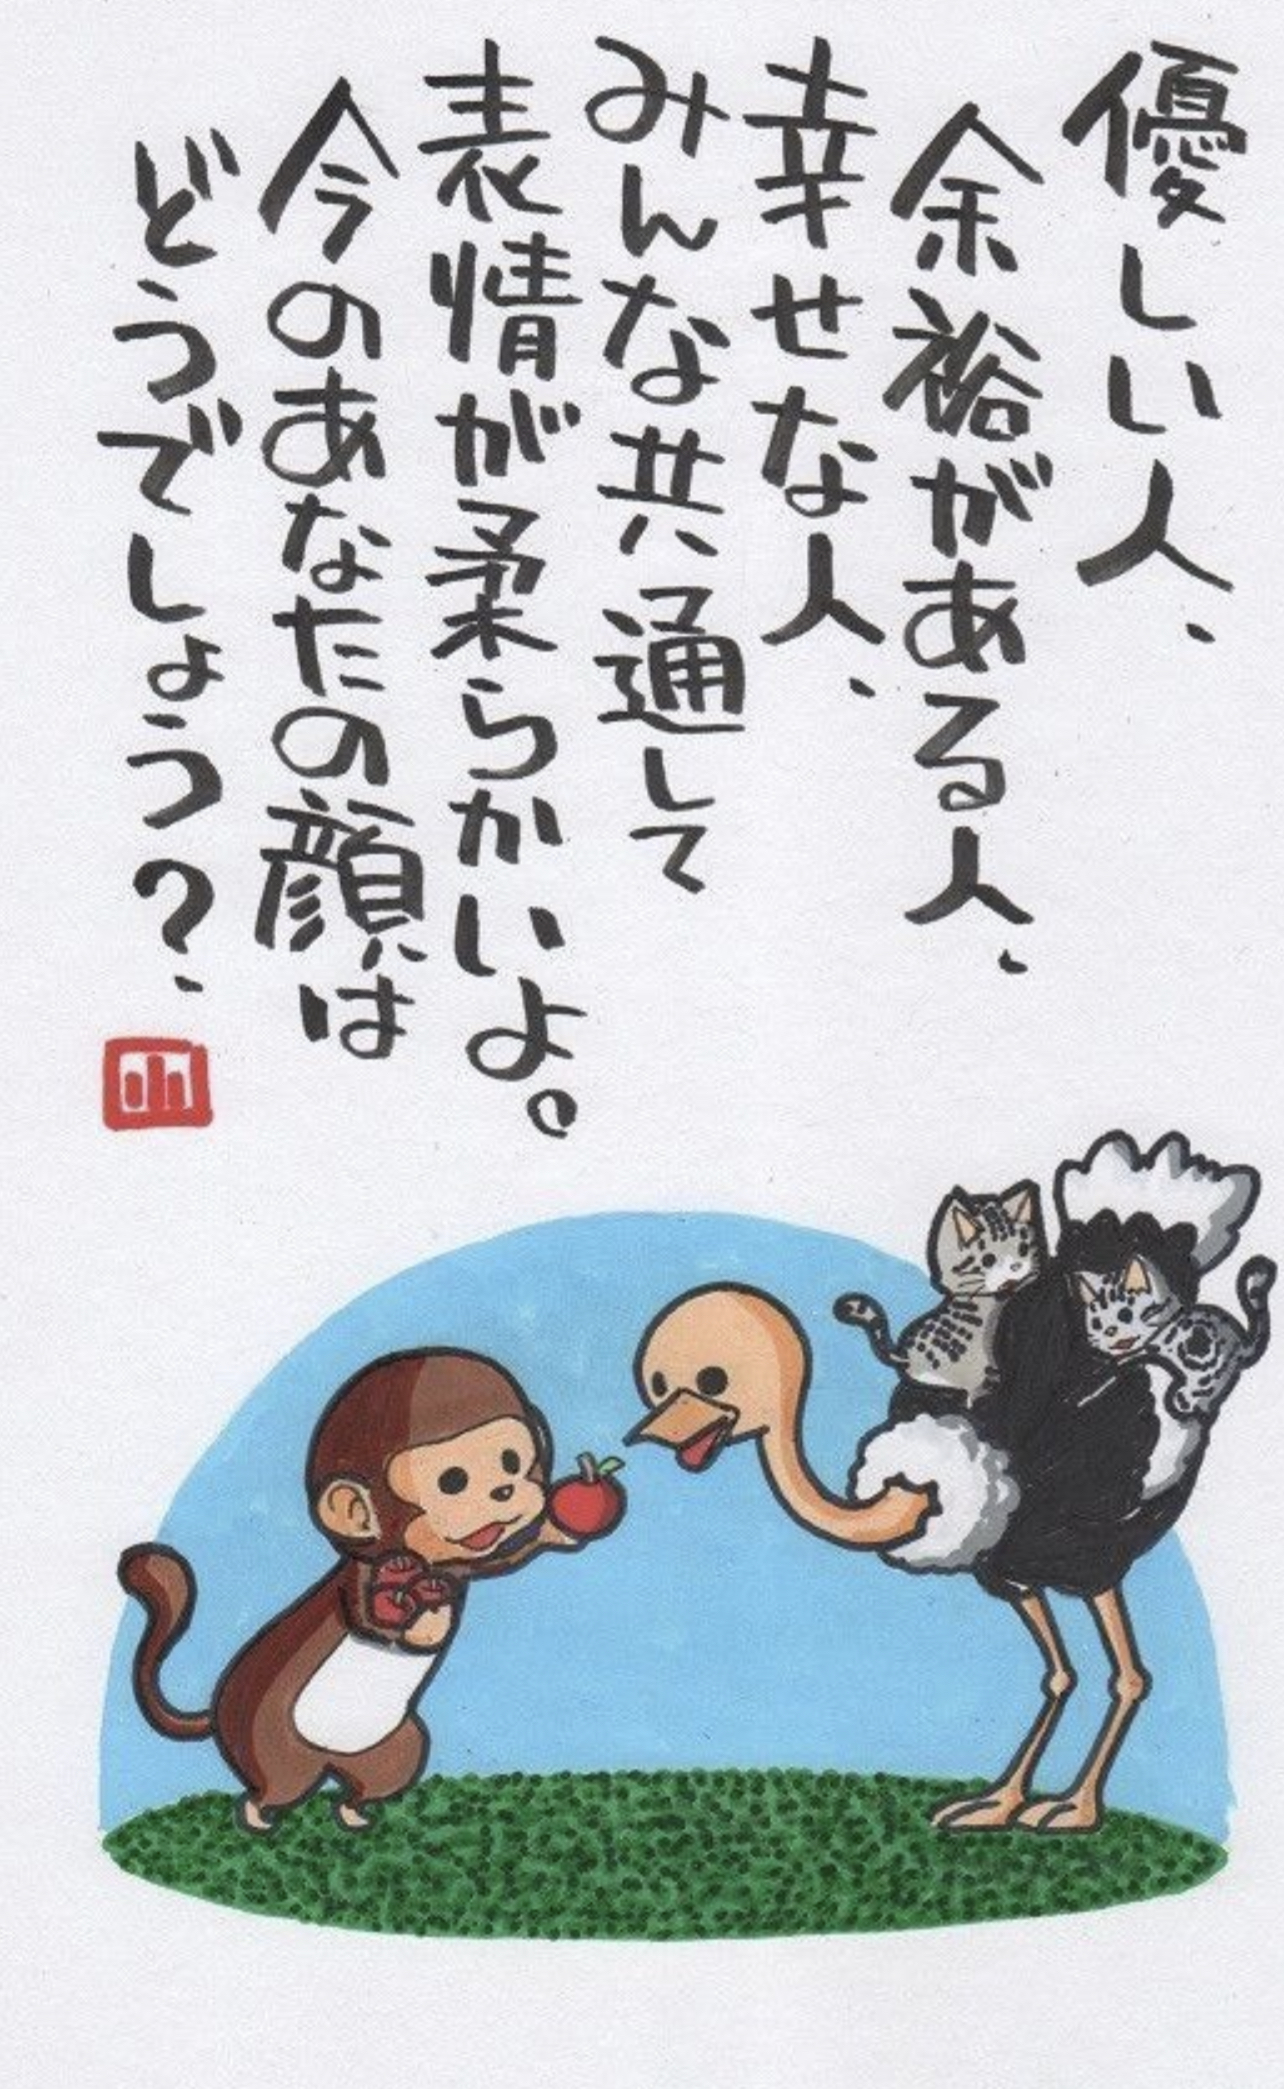 優しい人、
余裕がある人、
幸せな人、
みんな共通して
表情が柔らかいよ。
今のあなたの顔は
どうでしょう?